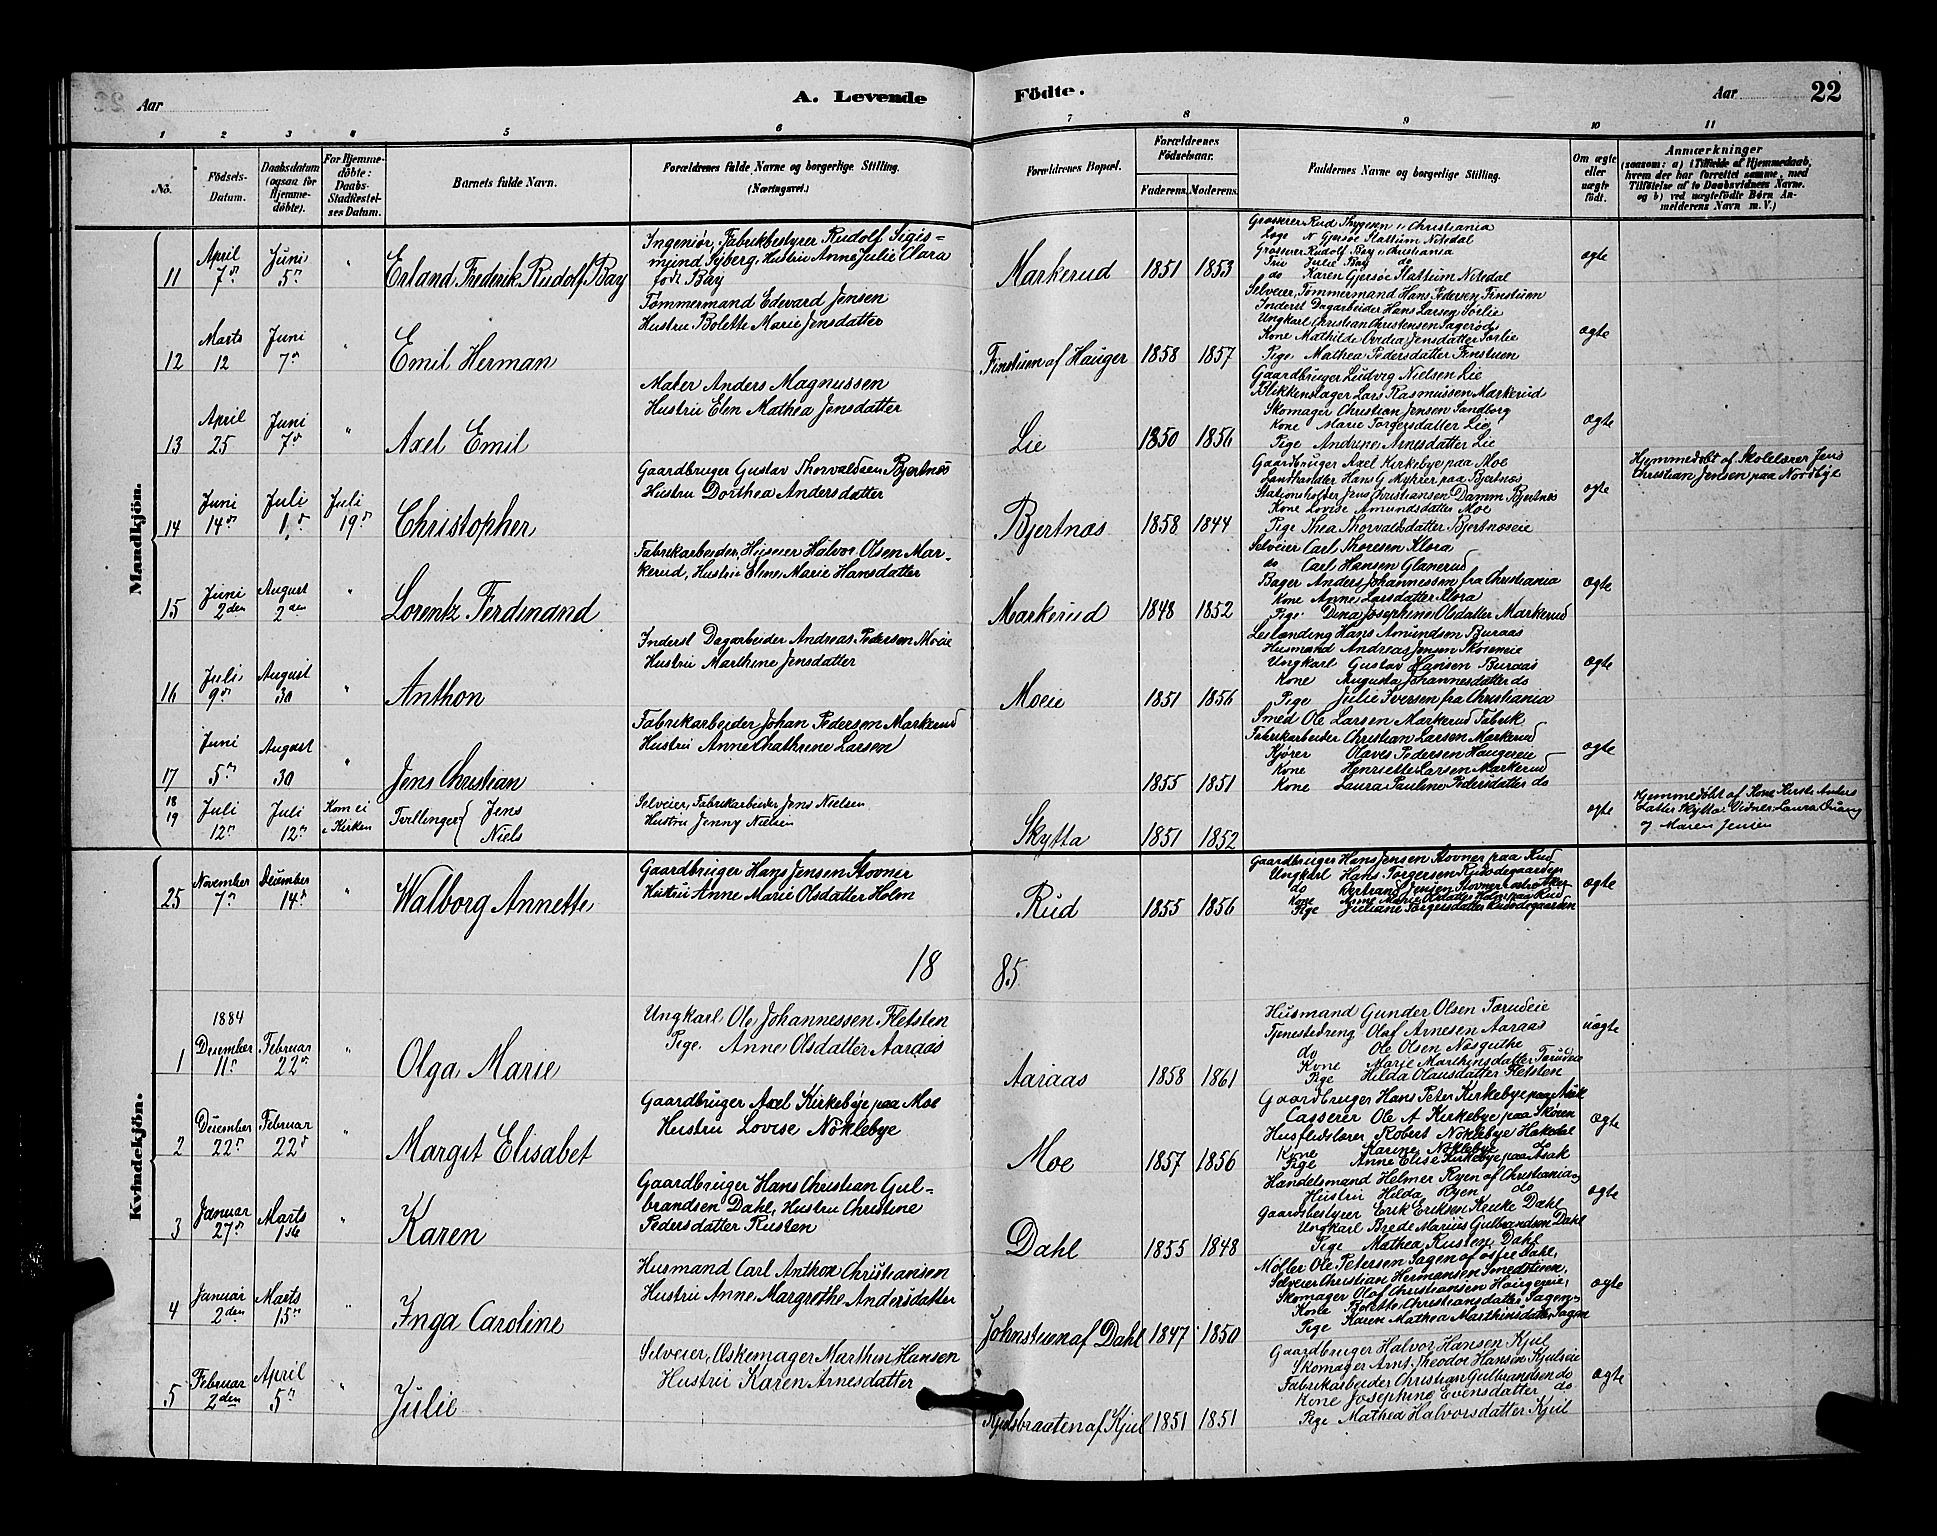 Aar
A. Levende
Födte.
Aar
22
1 2 3 4 5 6 7 8 9 10 11
No.
Födsels-
Datum.
Daabsdatum
(ogsaa for
Hjemme-
döbte).
For Hjemme-
döbte:
Daabs-
Stadfæstel-
ses Datum.
Barnets fulde Navn.
Forældrenes fulde Navne og borgerlige Stilling.
(Næringsvei.)
Forældrenes Bopæl.
Forældrenes
Födselsaar.
Faderens. Moderens.
Faddernes Navne og borgerlige Stilling.
Om ægte
eller
uægte
födt.
Anmærkninger
(saasom: a) i Tilfælde af Hjemmedaab,
hvem der har forrettet samme, med
Tilföielse af to Daabsvidners Navne.
og b) ved uægtefödte Börn An-
melderens Navn m. V.)
Mandkjön.
11
April
7de
Juni
5te
"
Erland Frederik Rudolf Bay
Ingeniør, Fabrikbestyrer Rudolf Sigis-
mund Syberg, Hustru Anne Julie Clara
født Bay
Markerud
1851 1853
Grosserer Rud Thygesen, Christiania
N Gjersøe Slattum Nitedal
Grosserer Rudolf Bay, Christiania
Fru Julie Bay do
do Karen Gjersøe Slattum Nitedal
ægte
12
Marts
12
Juni
7de
"
Emil Herman
Tømmermand Edevard Jensen
Hustru Bolette Marie Jensdatter
Finstuen af Hauger
1858 1857
Selveier, Tømmermand Hans Pedersen Finstuen
Inderst Dagarbeider Hans Larsen Sørlie
Ungkarl Christian Christensen Sagerød
Kone Mathilde Ovedia Jensdatter Sørlie
Pige Mathea Pedersdatter Finstuen
ægte
13
April
25
Juni
7de
"
Axel Emil
Maler Anders Magnussen
Hustru Elen Mathea Jensdatter
Lie
1850 1856
Gaardbruger Ludvig Nielsen Lie
Blikkenslager Lars Rasmussen Markerud
Skomager Christian Jensen Sandborg
Kone Marie Torgersdatter Lie
Pige Andrine Arnesdatter Lie
ægte
14
Juni
14de
Juli
1ste
Juli
19de
Christopher
Gaardbruger Gustav Thorvaldsen Bjertnæs
Hustru Dorthea Andersdatter
Bjertnæs
1858 1844
Gaardbruger Axel Kirkebye paa Moe
Landhandler Hans G Myhrer paa Bjertnæs
Stationsholder Jens Christiansen Damm Bjertnæs
Kone Lovise Amundsdatter Moe
Pige Thea Thorvaldsdatter Bjertnæseie
ægte
Hjemmedøbt af Skolelærer Jens
Christian Jensen paa Nordbye
15
Juni
2den
August
2den
"
Lorentz Ferdinand
Fabrikarbeider, Huseier Halvor Olsen Mar-
kerud, Hustru Eline Marie Hansdatter
Markerud
1848 1852
Selveier Carl Thoresen Klora
do Carl Hansen Glanerud
Bager Anders Johannessen fra Christiania
Kone Anne Larsdatter Klora
Pige Dina Josephine Olsdatter Markerud
ægte
16
Juli
9de
August
30
"
Anthon
Inderst Dagarbeider Andreas Pedersen Moeie
Hustru Marthine Jensdatter
Moeie
1851 1856
Leilænding Hans Amundsen Buraas
Husmand Andreas Jensen Skoseneie
Ungkarl Gustav Hansen Buraas
Kone Augusta Johannesdatter do
Pige Julie Iversen fra Christiania
ægte
17
Juni
5te
August
30
"
Jens Christian
Fabrikarbeider Johan Pedersen Markerud
Hustru Anne Chathrine Larsen
1855 1851
Smed Ole Larsen Markerud Fabrik
Fabrikarbeider Christian Larsen Markerud
Kjører Olaves Pedersen Haugereie
Kone Henriette Larsen Markerud
Kone Laura Pauline Pedersdatter do
ægte
18
19
Juli
12te
Juli
12te
Kom ei
i Kirken
Tvillinger { Jens
Niels
Selveier, Fabrikarbeider Jens Nielsen
Hustru Jenny Nielsen
Skytta
1851 1852
ægte
Hjemmedøbt af Kone Kirsti Anders
datter Skytta Vidner Laura
og Maren Jensen
Kvindekjön.
25
November
7de
December
14de
"
Walborg Annette
Gaardbruger Hans Jensen Stovner
Hustru Anne Marie Olsdatter Holm
Rud
1855 1856
Gaardbruger Hans Jensen Stovner paa Rud
Ungkarl Hans Torgersen Rudsødegaarden
do Bertrand Jensen Stovner
Kone Anne Marie Olsdatter Holm paa Rud
Pige Juliane Torgersdatter Rudsødegaarden
ægte
18 85
1
1884
December
11te
Februar
22de
"
Olga Marie
Ungkarl Ole Johannessen Fletsten
Pige Anne Olsdatter Aaraas
Aaraas
1858 1861
Husmand Gunder Olsen Torudeie
Tjenestedreng Olaf Arnesen Aaraas
do Ole Olsen Næsguthe
Kone Marie Marthinsdatter Torudeie
Pige Hilda Olausdatter Fletsten
uægte
2
December
22de
Februar
22de
"
Margit Elisabet
Gaardbruger Axel Kirkebye paa Moe
Hustru Lovise Nøklebye
Moe
1857 1856
Gaardbruger Hans Peter Kirkebye paa Asak
Casserer Ole A Kirkebye paa Skøien
Husflidslærer Robert Nøklebye Hakedal
Kone Karine Nøklebye do
Pige Anne Elise Kirkebye paa Asak
ægte
3
Januar
27de
Marts
1ste
"
Karen
Gaardbruger Hans Christian Gul-
brandsen Dahl, Hustru Christine
Pedersdatter Rusten
Dahl
1855 1848
Handelsmand Helmer Ryen af Christiania
Hustru Hilda Ryen do
Gaardsbestyrer Erik Eriksen Keuke Dahl
Ungkarl Brede Marius Gulbrandsen Dahl
Pige Mathea Rusten Dahl
ægte
4
Januar
2den
Marts
15de
"
Inga Caroline
Husmand Carl Anthon Christiansen
Hustru Anne Margrethe Andersdatter
Johnstuen af Dahl
1847 1850
Møller Ole Petersen Sagen af østre Dahl,
Selveier Christian Hermansen Smedstuen,
Skomager Olaf Christiansen Haugeneie,
Kone Bolette Christiansdatter Sagen
Pige Karen Mathea Marthinsdatter Sagen
ægte
5
Februar
2den
April
5te
"
Julie
Selveier, Øskemager Marthin Hansen
Hustru Karen Arnesdatter
Kjulsbraaten af Kjul
1851 1851
Gaardbruger Halvor Hansen Kjul
Skomager Arnt Theodor Hansen Kjulseie
Fabrikarbeider Christian Gulbrandsen do
Kone Josephine Evensdatter do
Pige Mathea Halvorsdatter Kjul
ægte